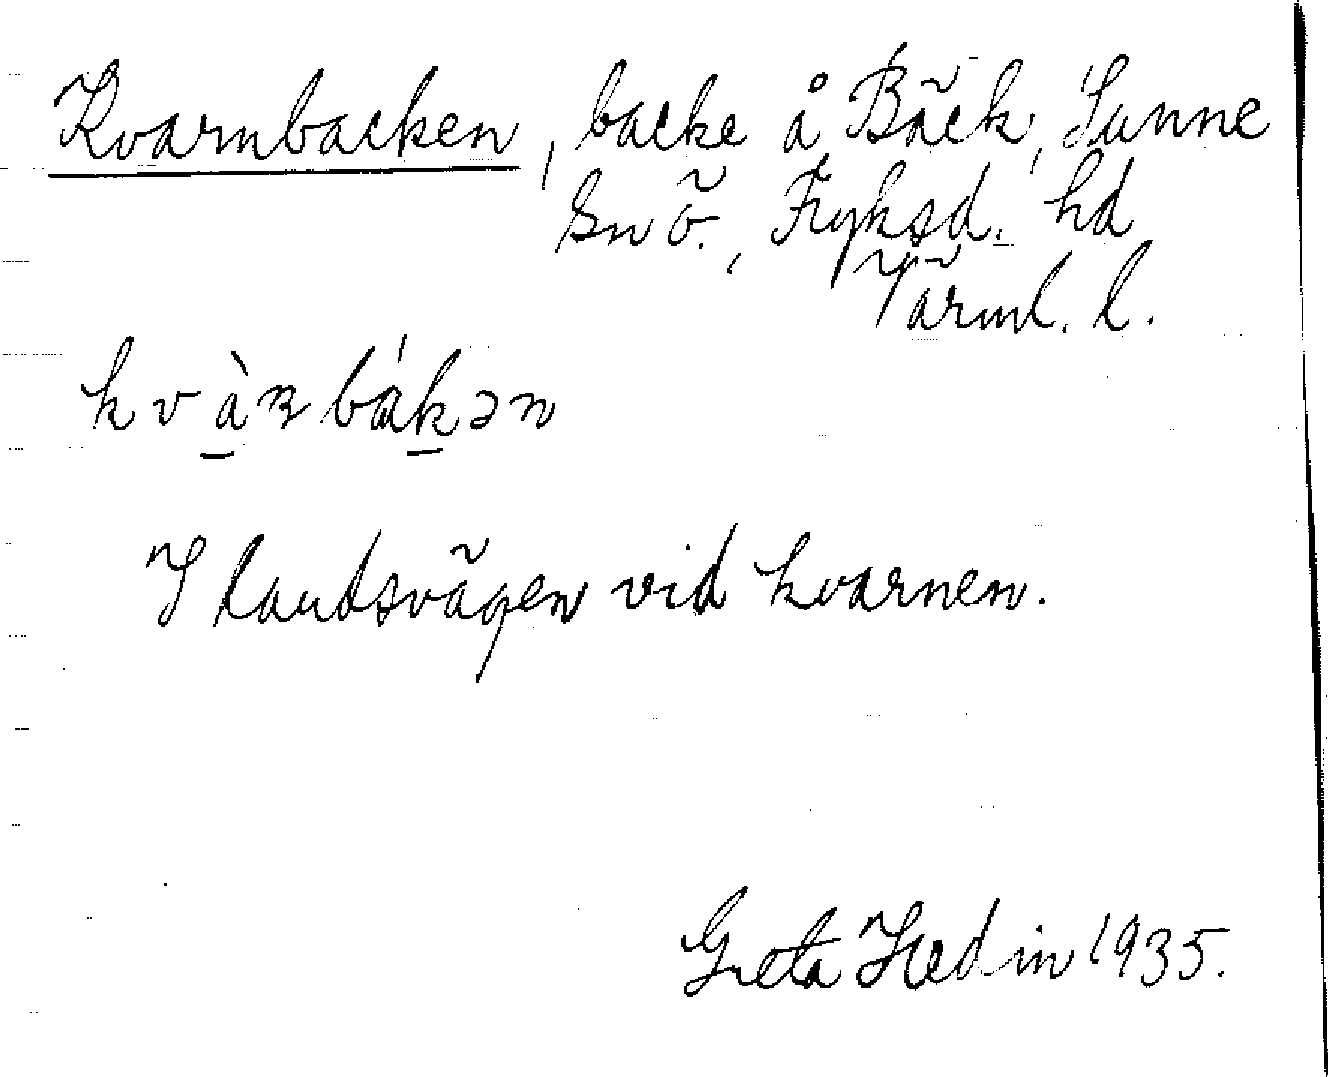 Kvarnbacken, backe å Bäck, Sunne
sn ö., Fryksd. hd
Värml. l.
kvàɴbák̠ən
I landsvägen vid kvarnen.
Greta Hedin 1935.